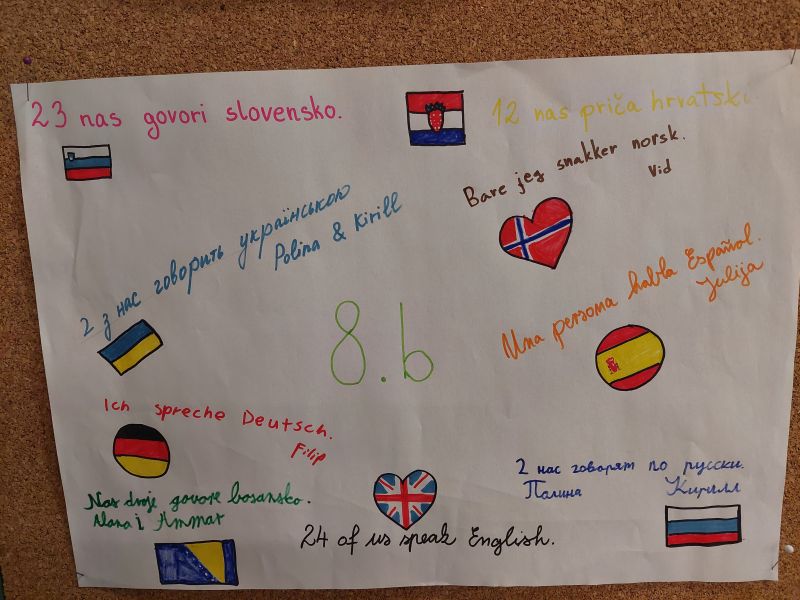 23 nas govori slovensko.
12 nas priča hrvatski.
Bare jeg snakker norsk.
Vid
2 з нас говорить українською
Polina & Kirill
Una persona habla Español.
Julija
8.b
Ich spreche Deutsch.
Filip
2 нас говорят по русски.
Полина Кирилл
Nas dvoje govore bosansko.
Nana i Ammar
24 of us speak English.